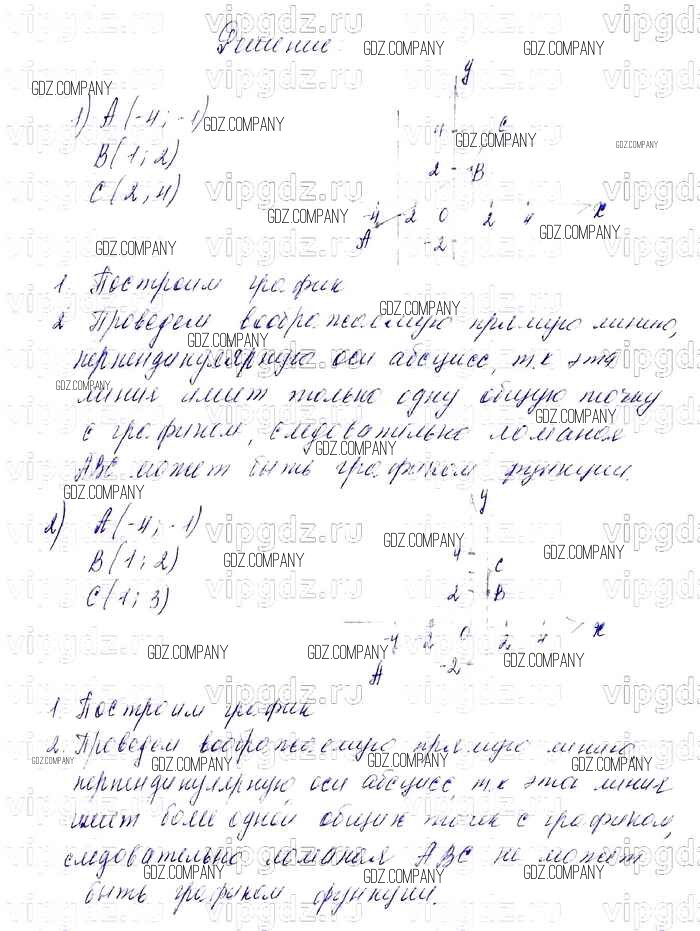 Решение:
1) A(-4; -1)
B(1; 2)
C(2; 4)
y
4
C
2
B
-4 -2 0 2 4 x
A
-2
1. Построим график
2 Проведем воображаемую прямую линию,
перпендикулярную оси абсцисс, т.к эта
линия имеет только одну общую точку
с графиком, следовательно ломаная
ABC может быть графиком функции.
2) A(-4; -1)
B(1; 2)
C(1; 3)
y
4
C
2
B
-4 -2 0 2 4 x
A
-2
1. Построим график
2. Проведем воображаемую прямую линию,
перпендикулярную оси абсцисс, т.к эта линия
имеет более одной общих точек с графиком,
следовательно ломаная ABC не может
быть графиком функции.
GDZ.COMPANY
vipgdz.ru